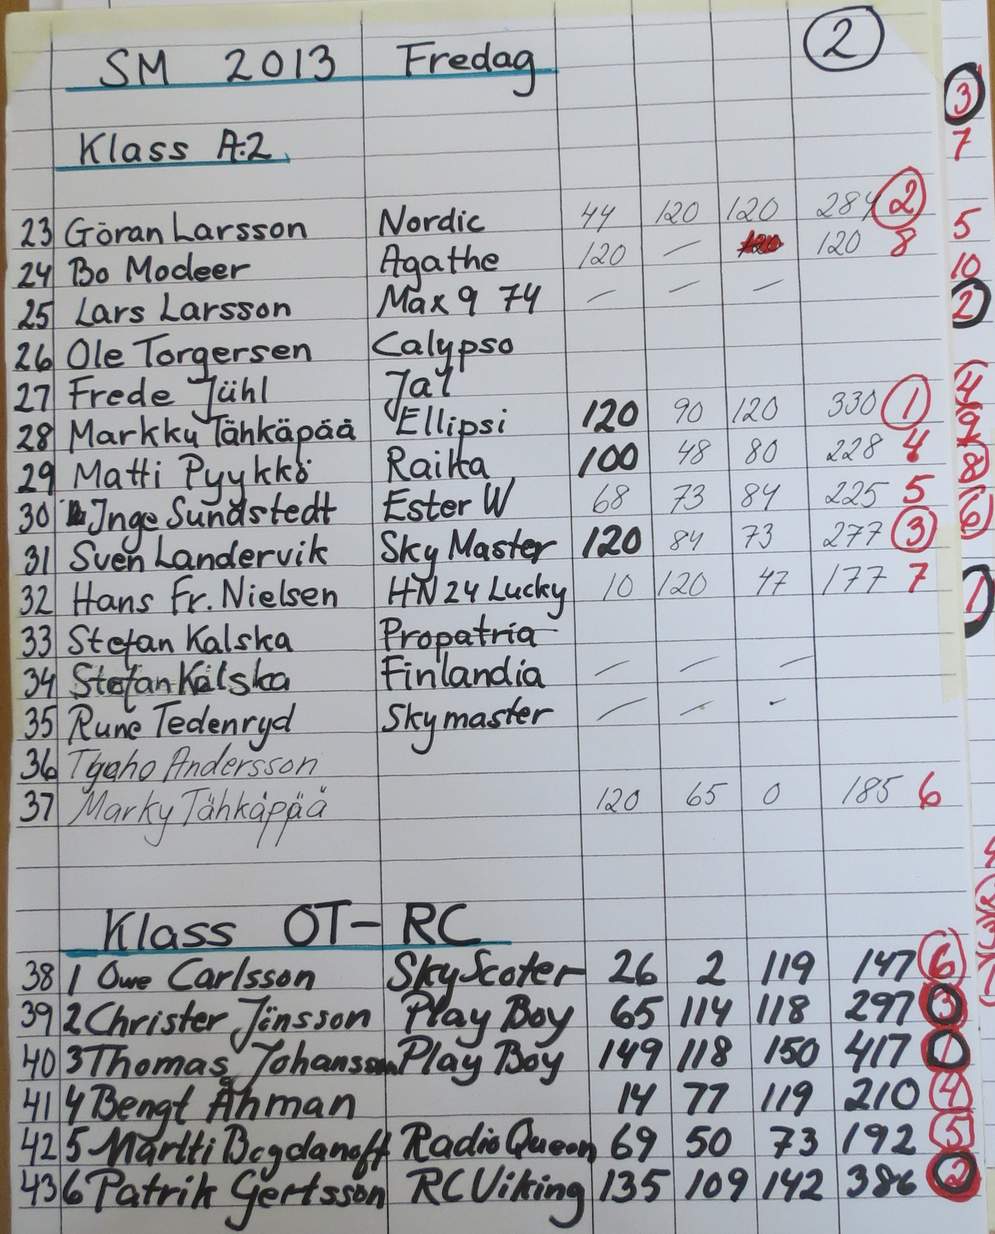 2
SM 2013 Fredag
Klass A:2
23 Göran Larsson Nordic 44 120 120 284 2
24 Bo Modeer Agathe 120 – 120 120 8
25 Lars Larsson Max 9 74 – – –
26 Ole Torgersen Calypso
27 Frede Jühl
28 Markku Tähkäpää Ellipsi 120 90 120 330 1
29 Matti Pyykkö Raika 100 48 80 228 4
30 Inge Sundstedt Ester W 68 73 84 225 5
31 Sven Landervik Sky Master 120 84 73 277 3
32 Hans Fr. Nielsen HN 24 Lucky 10 120 47 177 7
33 Stefan Kalska Propatria
34 Stefan Kalska Finlandia – – –
35 Rune Tedenryd Skymaster – – -
36 Andersson
37 Marky Tähkäpää 120 65 0 185 6
Klass OT-RC
38 1 Owe Carlsson SkyScoter 26 2 119 147 6
39 2 Christer Jönsson Play Boy 65 114 118 297 3
40 3 Thomas Johansson Play Boy 149 118 150 417 1
41 4 Bengt Åhman 14 77 119 210 4
42 5 Martti Bogdanoff Radio Queen 69 50 73 192 5
43 6 Patrik Gertsson RC Viking 135 109 142 386 2
3
7
5
10
2
4
9
8
6
1